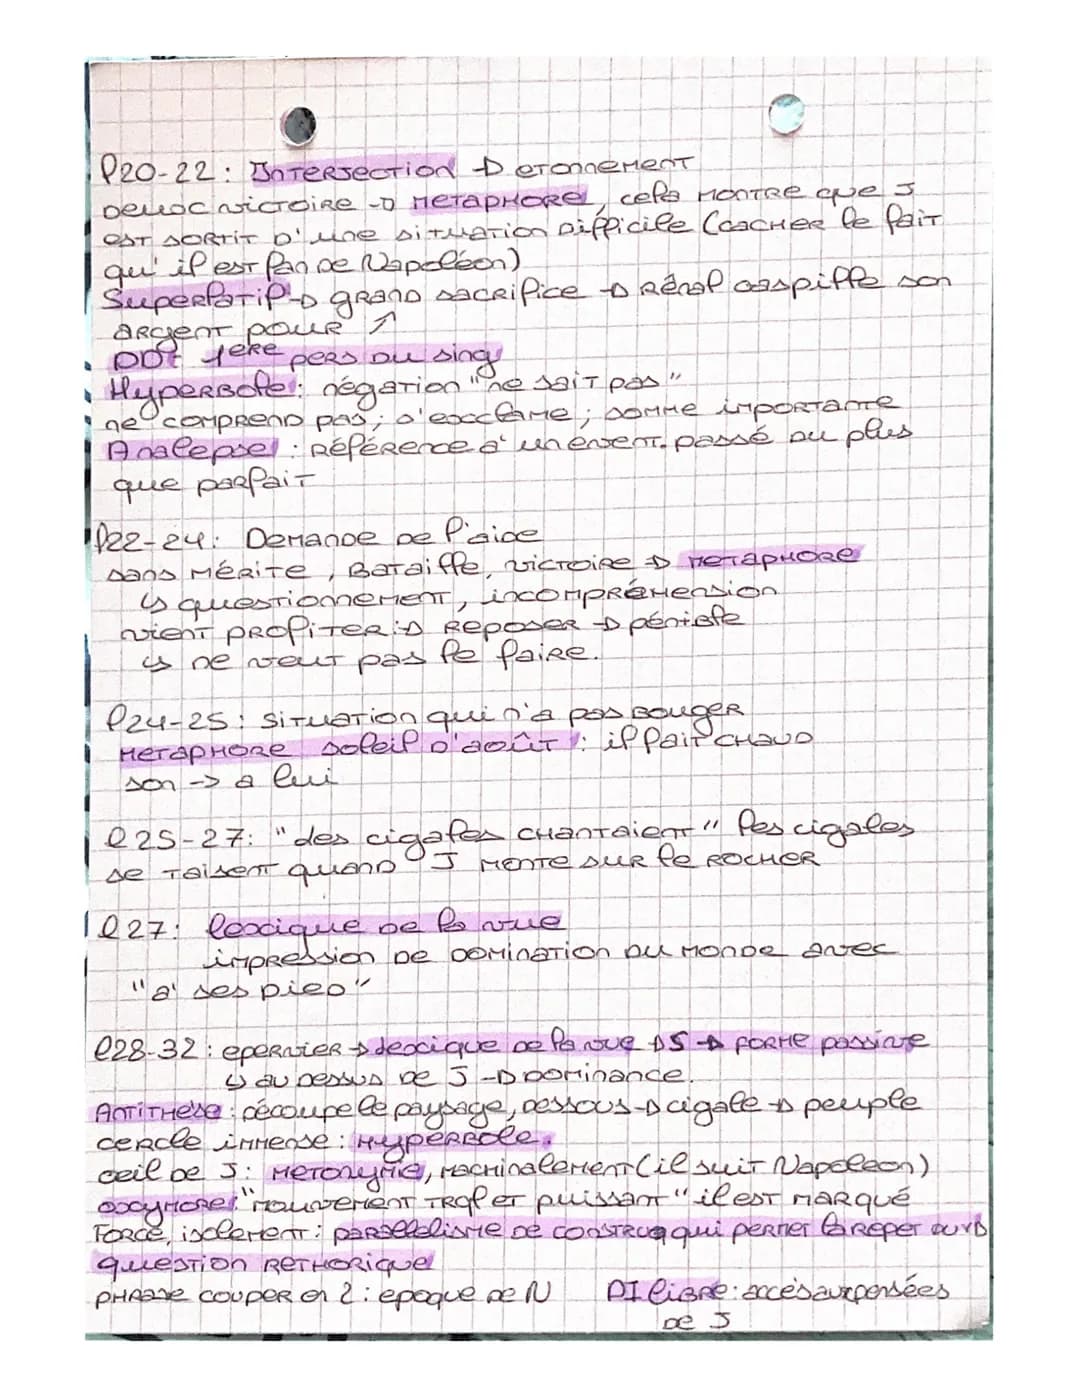 l20-22 : Intersection → etonnement
deux victoire → metaphore, cela montre que J
est sortit d'une situation difficile (cacher le fait
qu'il est fan de Napoléon)
Superlatif → grand sacrifice → Rênal gaspille son
argent pour ↗
DDt 1ere pers du sing
Hyperbole : négation "ne sait pas"
ne comprend pas ; s'exclame ; somme importante
Analepse : référence à un event. passé au plus
que parfait
l22-24 : Demande de l'aide
sans mérite, Bataille, victoire → metaphore
↳ questionnement, incompréhension
vient profiter → reposer → pénible
↳ ne veut pas le faire.
l24-25 : situation qui n'a pas bouger
metaphore soleil d'août : il fait chaud
son -> a lui
l25-27 : "des cigales chantaient" les cigales
se taisent quand J monte sur le rocher
l27 : lexique de la vue
impression de domination du monde avec
"a' ses pied"
l28-32 : epervier → lexique de la vue → S → forme passive
↳ au dessus de J → dominance.
Antithèse : découpe le paysage, dessous → cigale → peuple
cercle immense : hyperbole.
oeil de J : metonymie, machinalement (il suit Napoleon)
oxymore : "mouvement tral et puissant" il est marqué
Force, isolement : parallelisme de construc qui permet la reper
question rethorique
phrase couper en 2 : epoque de N DI libre : accès aux pensées
de J